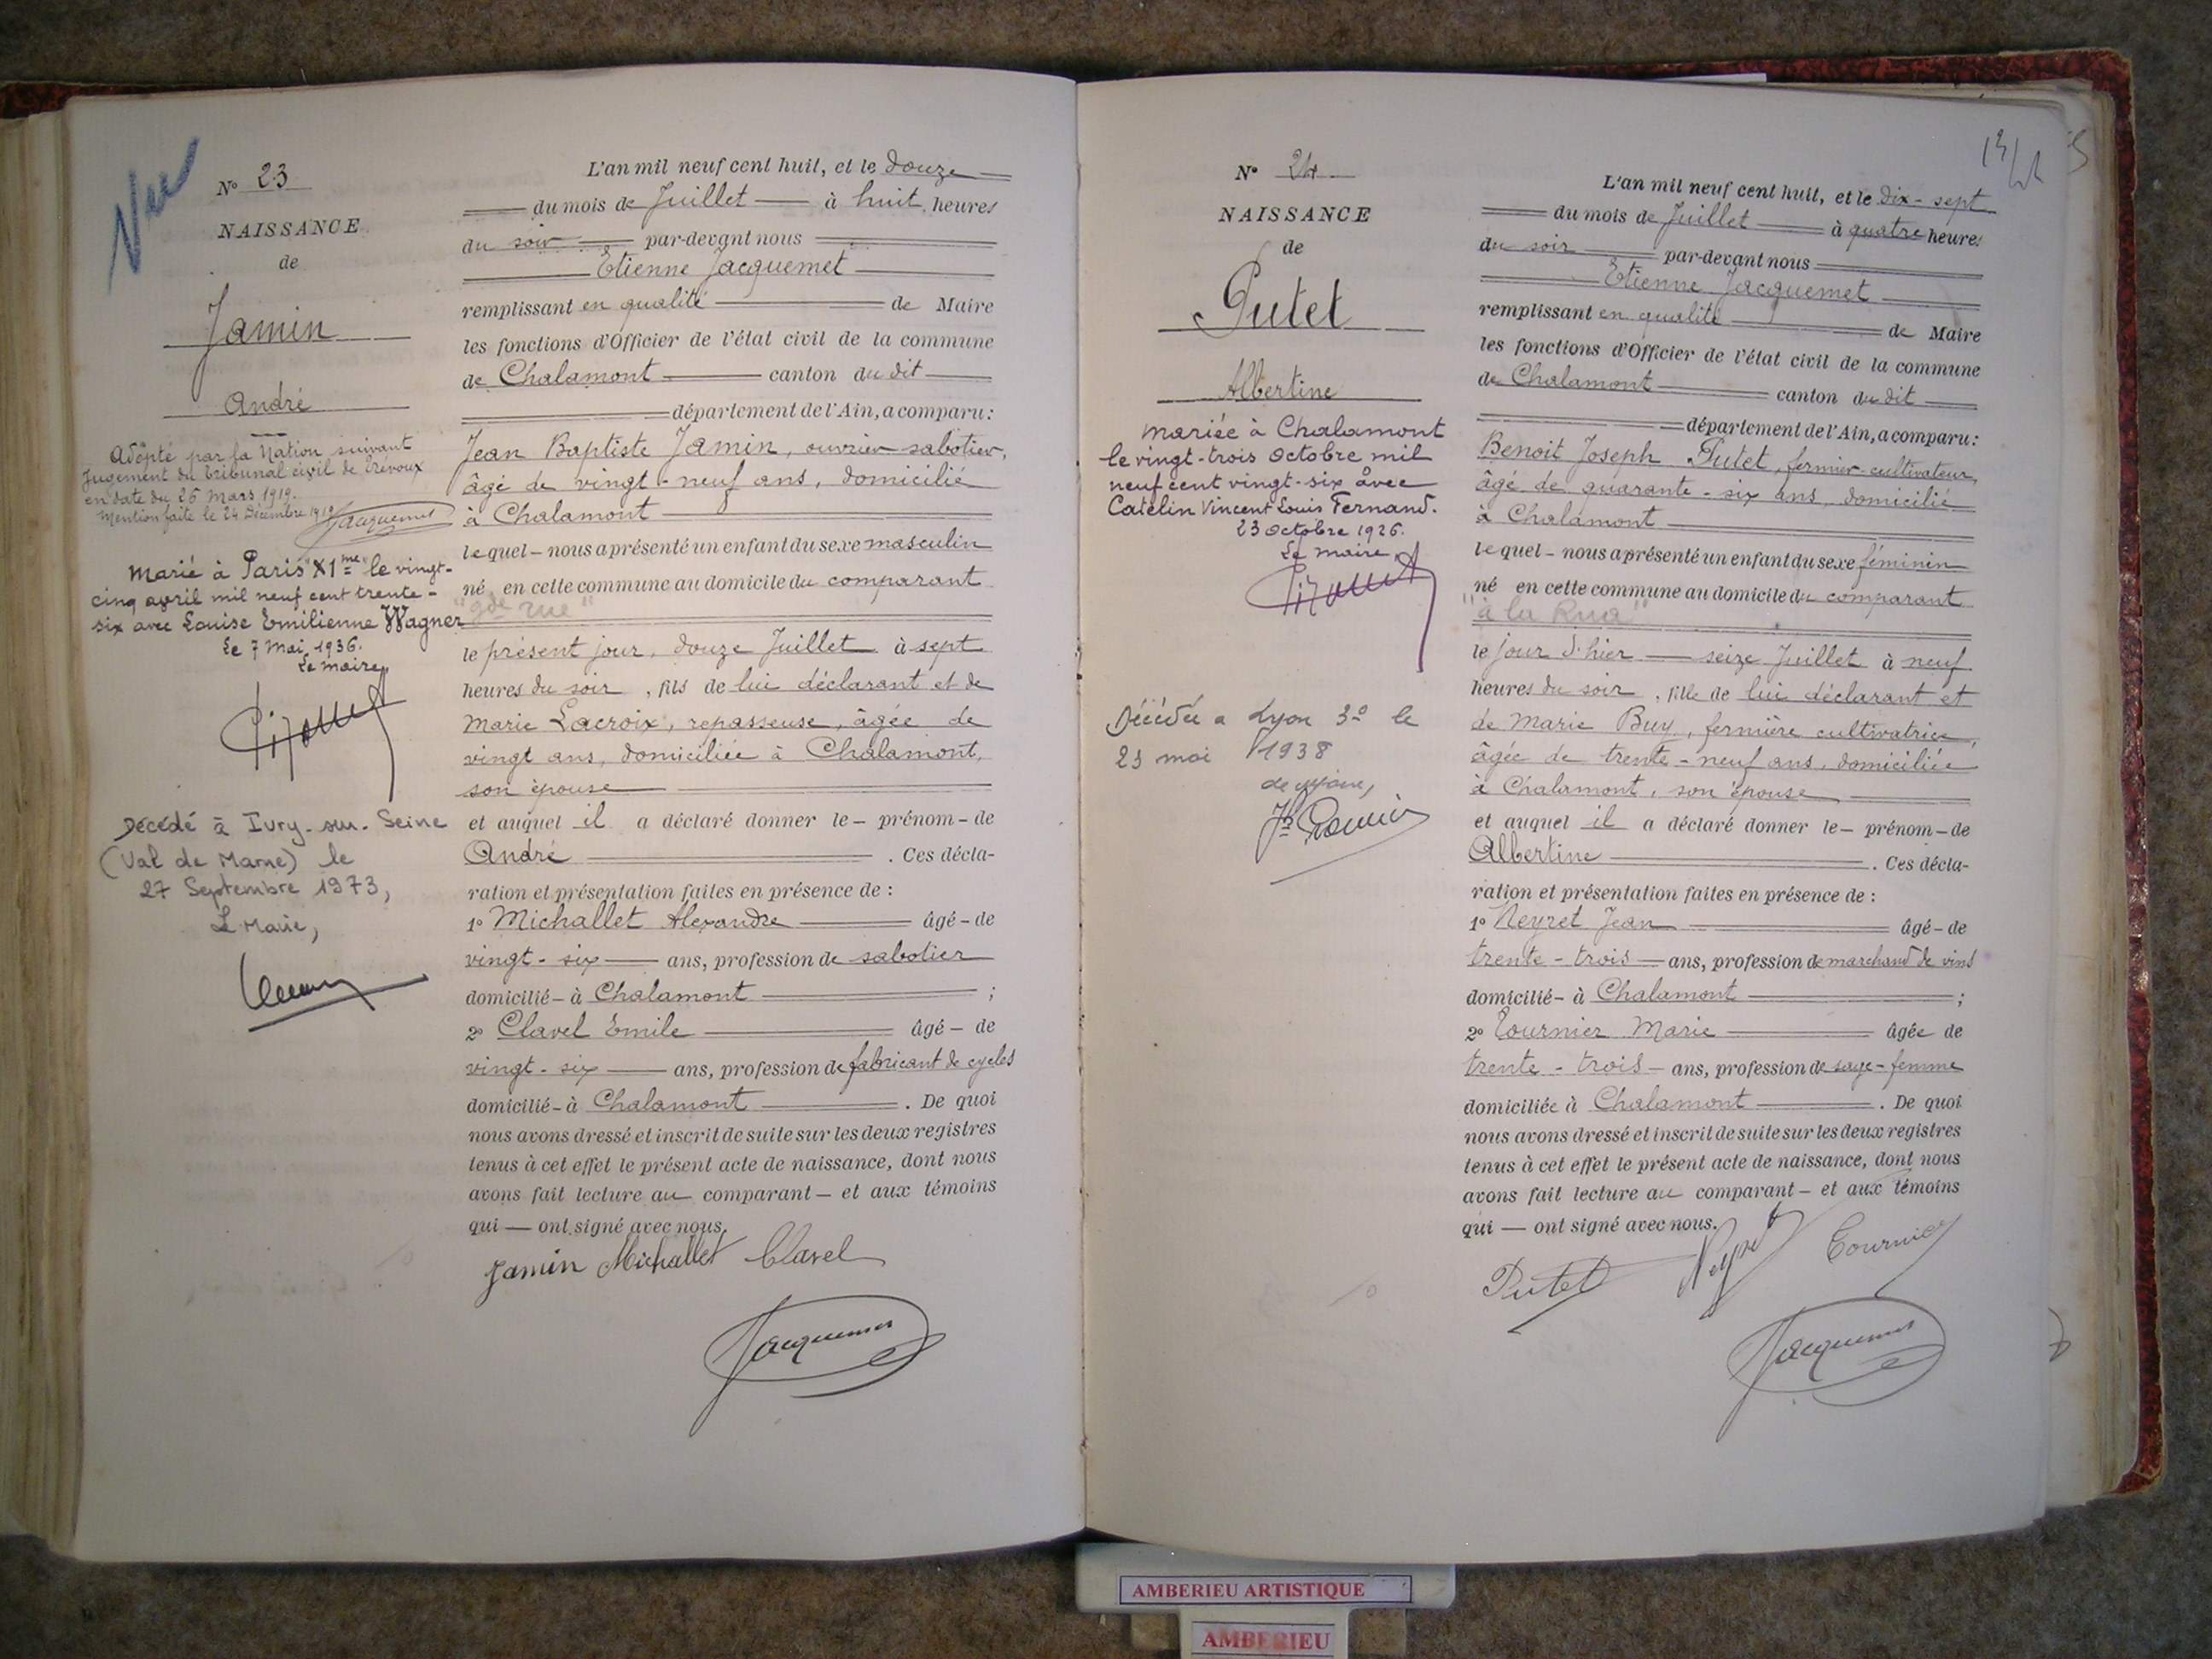 Vu
N° 23
NAISSANCE
de
Jamin
André
Adopté par la Nation suivant
Jugement du tribunal civil de Trévoux
en date du 26 Mars 1919.
Mention faite le 24 Décembre 1919
Jacquemet
Marié à Paris XI me le vingt-
cinq avril mil neuf cent trente-
six avec Louise Emilienne Wagner
Le 7 Mai 1936.
Le maire
Décédé à Ivry-sur-Seine
(Val de Marne) le
27 Septembre 1973,
Le Maire,
L'an mil neuf cent huit, et le douze
du mois de Juillet à huit heures
du soir par-devant nous
Etienne Jacquemet
remplissant en qualité de Maire
les fonctions d'Officier de l'état civil de la commune
de Chalamont canton du dit
département de l'Ain, a comparu:
Jean Baptiste Jamin, ouvrier sabotier,
âgé de vingt-neuf ans, domicilié
à Chalamont
lequel - nous a présenté un enfant du sexe masculin
né en cette commune au domicile du comparant
"gde rue"
le présent jour, douze Juillet à sept
heures du soir, fils de lui déclarant et de
Marie Lacroix, repasseuse, âgée de
vingt ans, domiciliée à Chalamont,
son épouse
et auquel il a déclaré donner le - prénom - de
André . Ces décla-
ration et présentation faites en présence de :
1° Michallet Alexandre âgé - de
vingt-six ans, profession de sabotier
domicilié - à Chalamont ;
2° Clavel Emile âgé - de
vingt-six ans, profession de fabricant de cycles
domicilié - à Chalamont . De quoi
nous avons dressé et inscrit de suite sur les deux registres
tenus à cet effet le présent acte de naissance, dont nous
avons fait lecture au comparant - et aux témoins
qui — ont signé avec nous.
Jamin Michallet Clavel
Jacquemet
N° 24
NAISSANCE
de
Putet
Albertine
mariée à Chalamont
le vingt-trois Octobre mil
neuf cent vingt-six avec
Catelin Vincent Louis Fernand.
23 Octobre 1926.
Le maire
Décédée a Lyon 3° le
23 mai 1938
L'an mil neuf cent huit, et le dix-sept
du mois de Juillet à quatre heures
du soir par-devant nous
Etienne Jacquemet
remplissant en qualité de Maire
les fonctions d'Officier de l'état civil de la commune
de Chalamont canton du dit
département de l'Ain, a comparu:
Benoit Joseph Putet, fermier-cultivateur,
âgé de quarante-six ans, domicilié
à Chalamont
lequel - nous a présenté un enfant du sexe féminin
né en cette commune au domicile du comparant
"à la Rua"
le jour d'hier — seize Juillet à neuf
heures du soir, fille de lui déclarant et
de Marie Buy, fermière cultivatrice,
âgée de trente-neuf ans, domiciliée
à Chalamont, son épouse
et auquel il a déclaré donner le - prénom - de
Albertine . Ces décla-
ration et présentation faites en présence de :
1° Neyret Jean âgé - de
trente-trois ans, profession de marchand de vins
domicilié - à Chalamont ;
2° Tournier Marie âgée de
trente-trois ans, profession de sage-femme
domiciliée à Chalamont . De quoi
nous avons dressé et inscrit de suite sur les deux registres
tenus à cet effet le présent acte de naissance, dont nous
avons fait lecture au comparant - et aux témoins
qui — ont signé avec nous.
Putet Neyret Tournier
Jacquemet
AMBERIEU ARTISTIQUE
AMBERIEU